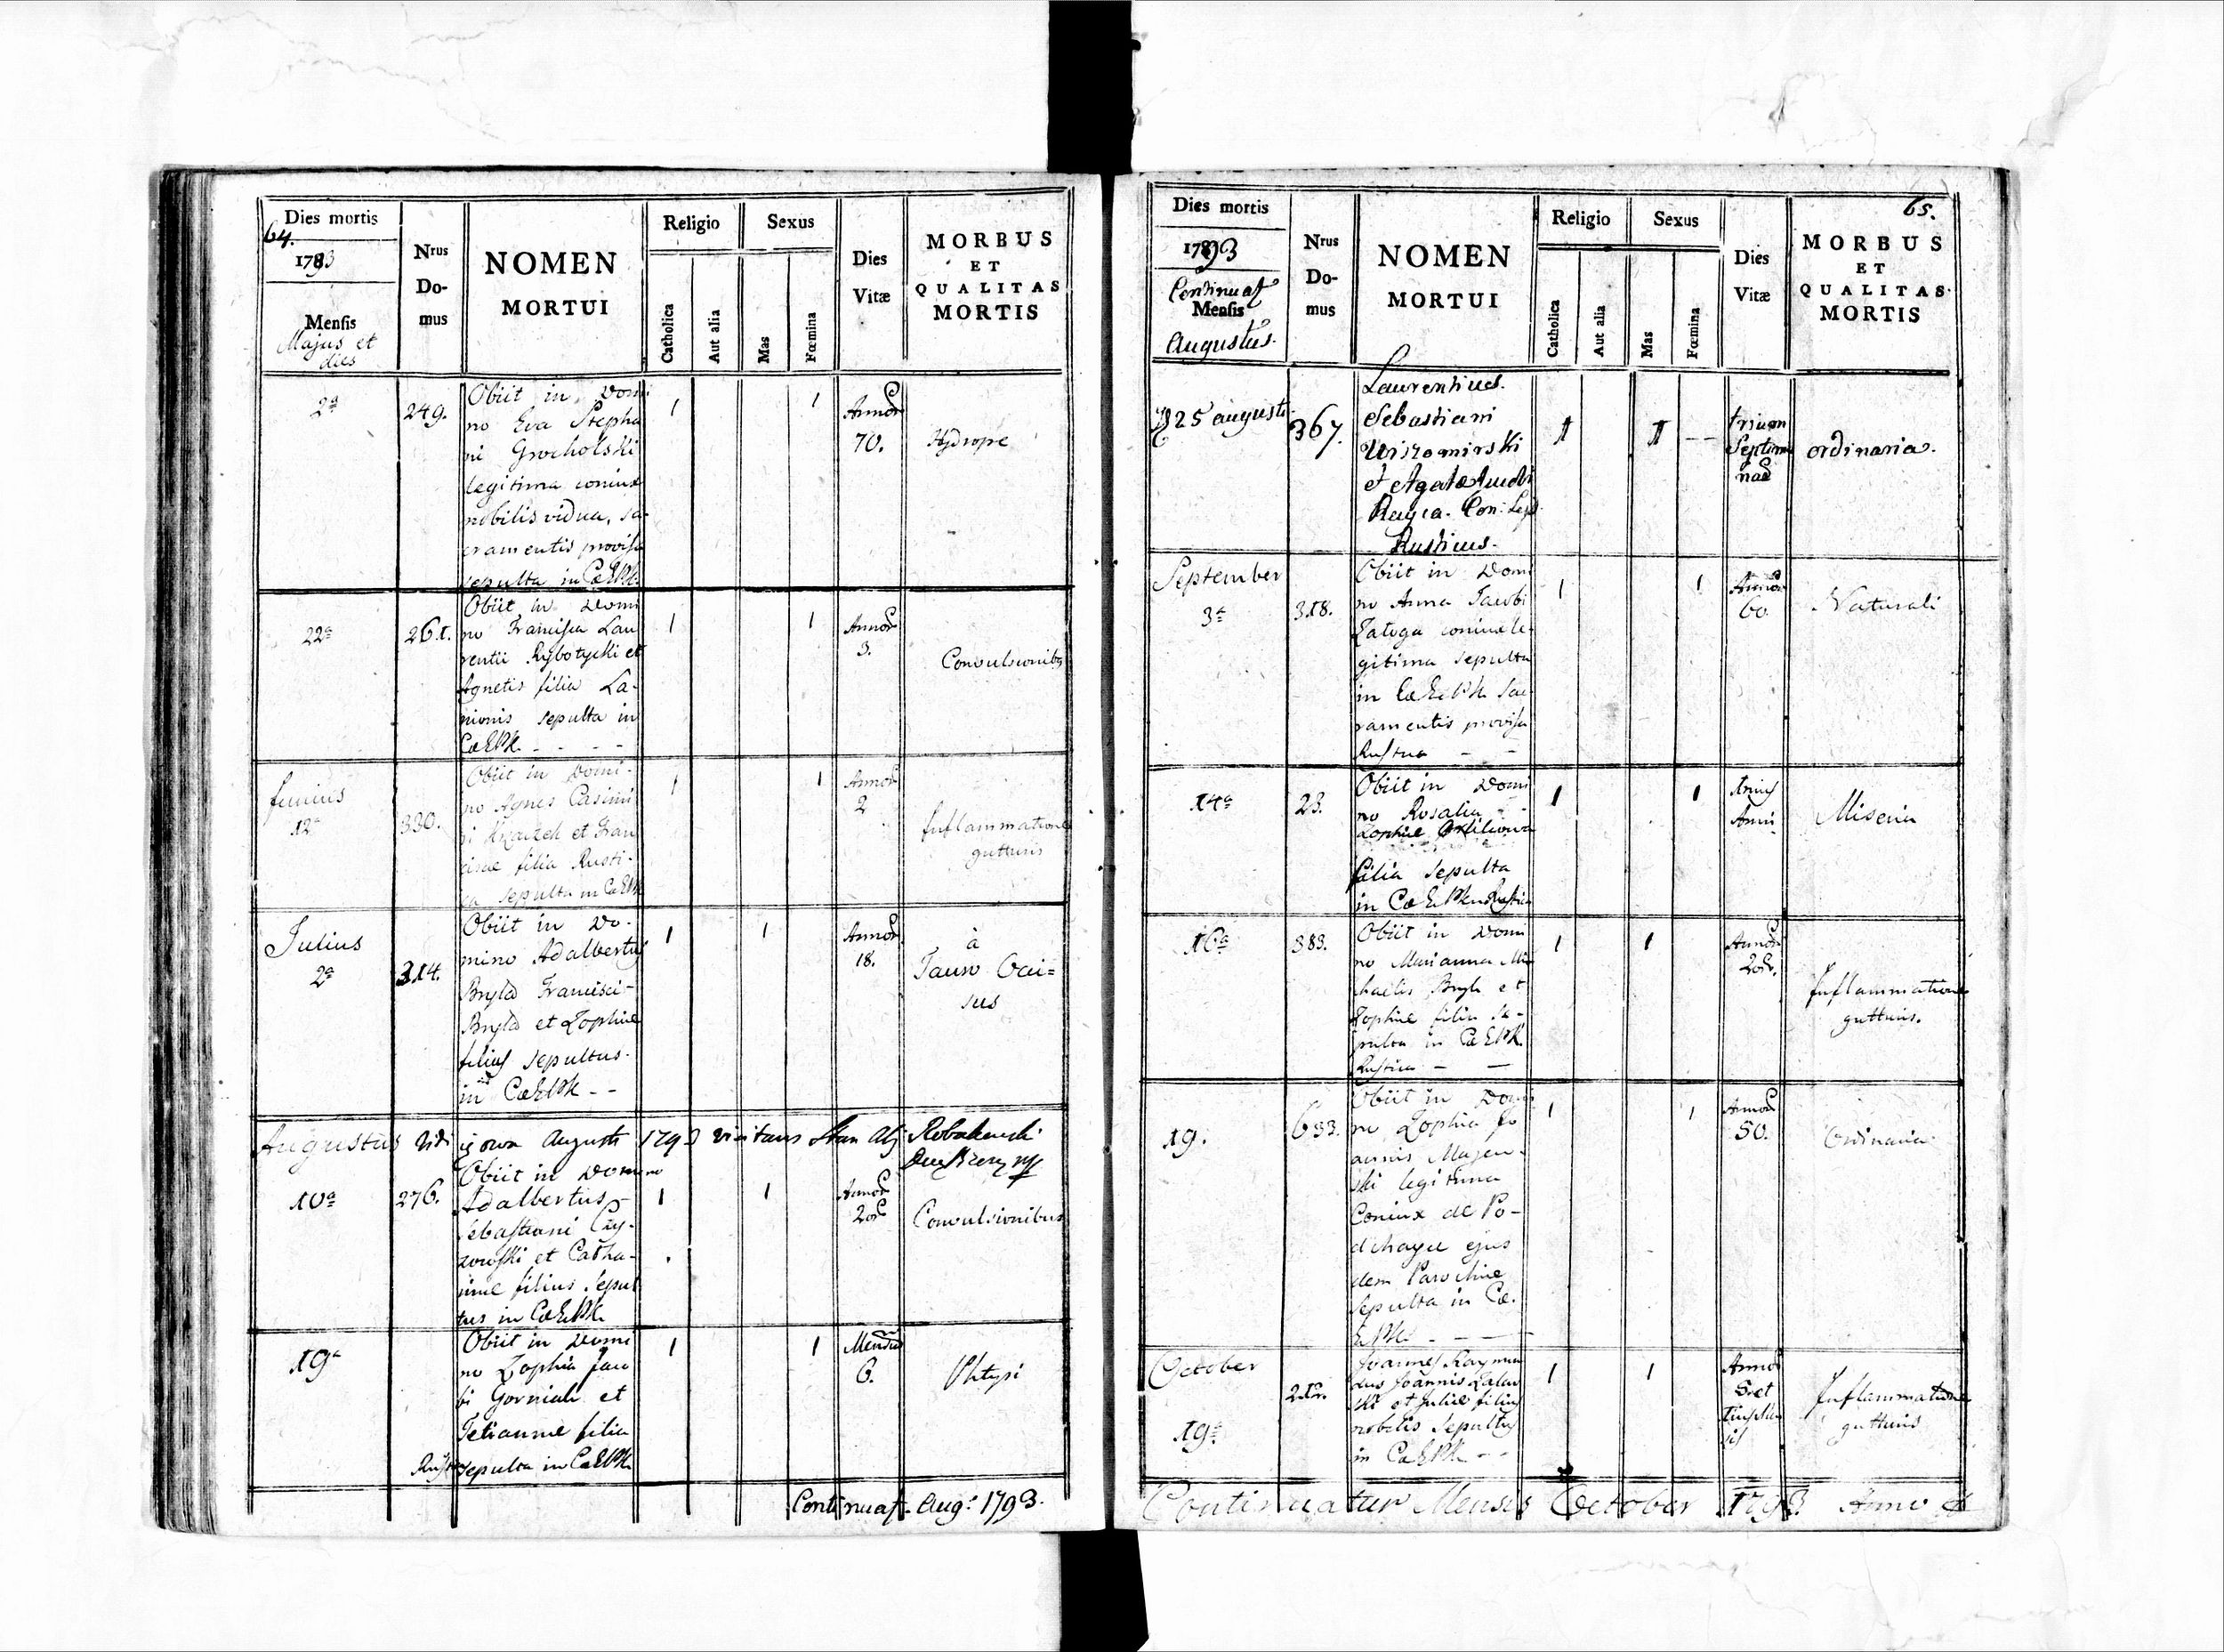 64.
Dies mortis
1793
Mensis
Majus et
dies
Nrus
Do-
mus
NOMEN
MORTUI
Religio
Catholica
Aut alia
Sexus
Mas
Fœmina
Dies
Vitæ
MORBUS
ET
QUALITAS
MORTIS
2a
249.
Obiit in Domi
no Eva Stepha
ni Grocholski
legitima coniux
nobilis vidua, sa-
cramentis provisa
sepulta in CœEPk
1
1
Annor
70.
Hydrope
22a
261.
Obiit in Domi
no Francisca Lau
rentii Rybotycki et
Agnetis filia La-
nionis sepulta in
CœEPk. - - - -
1
1
Annor
3.
Convulsionibq
Junius
12a
330.
Obiit in Domi-
no Agnes Casimi
ri et Fran
cisce filia Rusti-
ca sepulta in CœEPk
1
1
Annor
2
Inflammatione
gutturis
Julius
2a
314.
Obiit in Do-
mino Adalbertus
Bryla Francisci
Bryla et Zophiæ
filius sepultus
in CœEPk - -
1
1
Annor
18.
à
Tauro Occi=
sus
Augustus
Augusti 1793 visitans Robakowski
10a
276.
Obiit in Domino
Adalbertus
Sebastiani Cry-
zowski et Catha-
rinæ filius sepul
tus in CœEPk
1
1
Annor
2or
Convulsionibus
19a
Obiit in Domi
no Zophia Jaco
bi Gorniak et
Tetiannæ filia
Rust sepulta in CœEPk
1
1
Mensiu
6.
Phtysi
Continuat. Aug: 1793.
65.
Dies mortis
1793
Continuat
Mensis
Augustus.
Nrus
Do-
mus
NOMEN
MORTUI
Religio
Catholica
Aut alia
Sexus
Mas
Fœmina
Dies
Vitæ
MORBUS
ET
QUALITAS
MORTIS
25 augusti
367.
Laurentius.
Sebastiani
et Agatæ
Con: Leg
Rusticus.
1
1
--
trium
Septima
nar
ordinaria.
September
3a
318.
Obiit in Domi
no Anna Jacobi
Zatoga coniux le-
gitima sepulta
in CœEPk sac
ramentis provisa
Rustica - -
1
1
Annor
60.
Naturali
14a
23.
Obiit in Domi
no Rosalia
Zophiæ
filia sepulta
in CœEPk Rustica
1
1
Unius
Anni
Miseria
16a
383.
Obiit in Domi
no Marianna Mi
chaelis Bryk et
Zophiæ filia se-
pulta in CœEPk
Rustica - -
1
1
Annor
2or.
Inflammatione
gutturis.
19.
Obiit in Domi
no Zophia Jo
annis Majew-
ski legitima
Coniux de Po-
dchayce ejus
dem Parochiæ
sepulta in Cœ.
EPk. - - -
1
1
Annor
50.
Ordinaria
October
19a
Joannes Raymun
dus Joannis Zalew
ski et Juliæ filius
nobilis sepultus
in CœEPk - -
1
1
Annor
Inflammatione
gutturis
Continuatur Mensis October 1793. Anno